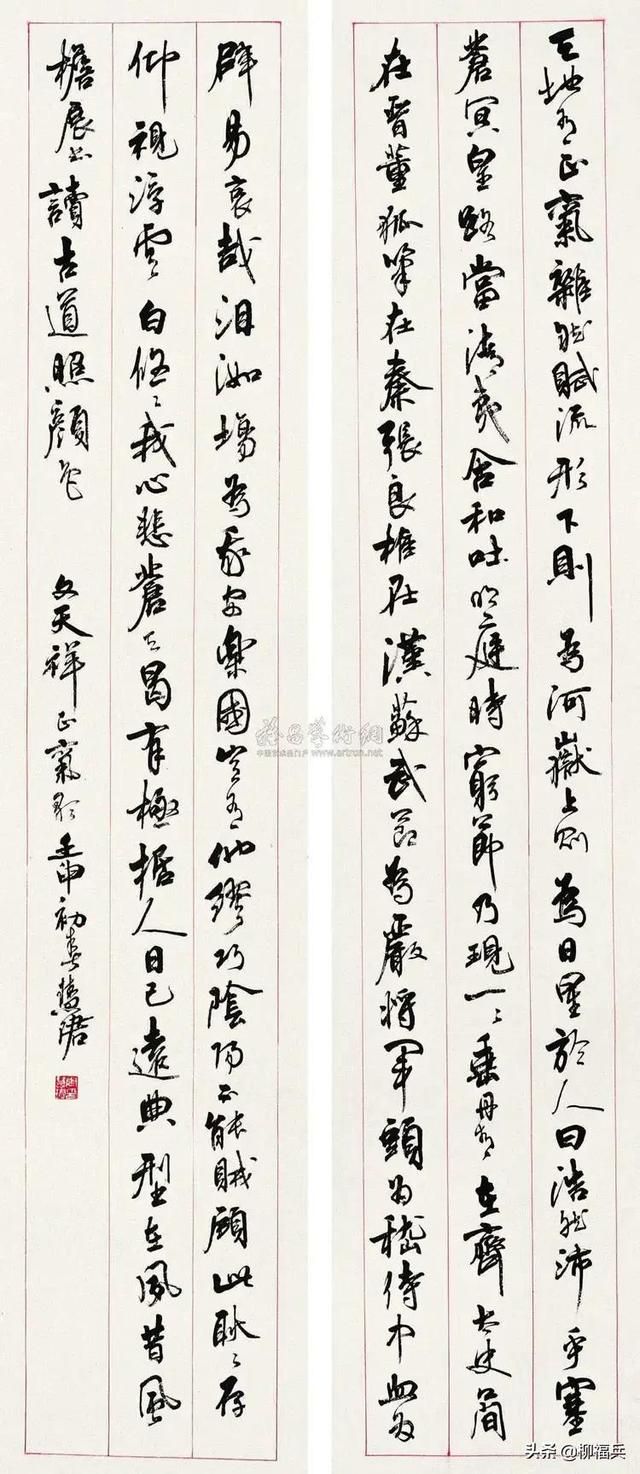 天地有正氣雜然賦流形下則為河嶽上則為日星於人曰浩然沛乎塞
蒼冥皇路當清夷含和吐明庭時窮節乃現一々垂丹青在齊太史簡
在晉董狐筆在秦張良椎在漢蘇武節為嚴將軍頭為嵇侍中血為
辟易哀哉沮洳場為我安樂國豈有他繆巧陰陽不能賊顧此耿々存
仰視浮雲白悠々我心悲蒼天曷有極哲人日已遠典型在夙昔風
檐展書讀古道照顏色 文天祥正氣歌 壬申初春慧珺
雅昌藝術網
中国艺术品门户 www.artron.net
头条 @柳福兵